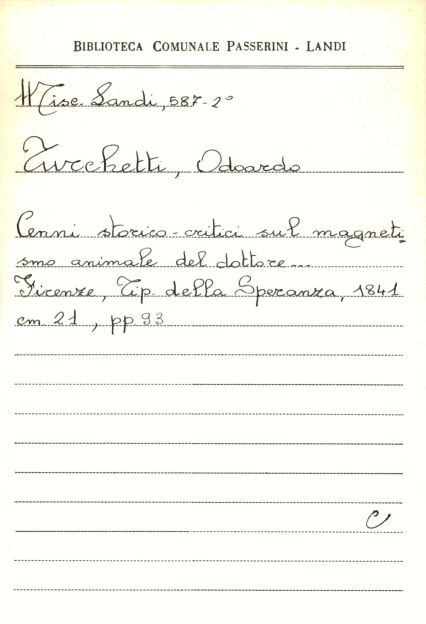 BIBLIOTECA COMUNALE PASSERINI - LANDI
Misc. Landi, 587-2°
Turchetti, Odoardo
Cenni storico-critici sul magneti-
smo animale del dottore...
Firenze, Tip. della Speranza, 1841
cm 21, pp 93
C